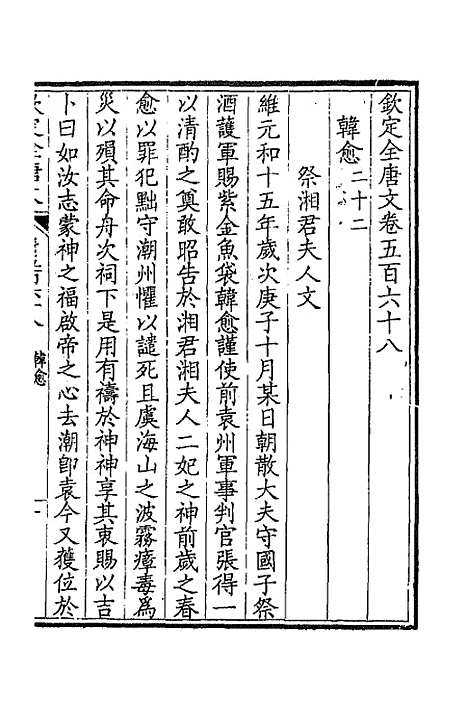 欽定全唐文卷五百六十八
韓愈二十二
祭湘君夫人文
維元和十五年歲次庚子十月某日朝散大夫守國子祭
酒護軍賜紫金魚袋韓愈謹使前袁州軍事判官張得一
以清酌之奠敢昭告於湘君湘夫人二妃之神前歲之春
愈以罪犯黜守潮州懼以譴死且虞海山之波霧瘴毒爲
災以殞其命舟次祠下是用有禱於神神享其衷賜以吉
卜曰如汝志蒙神之福啟帝之心去潮卽袁今又獲位於
韓愈